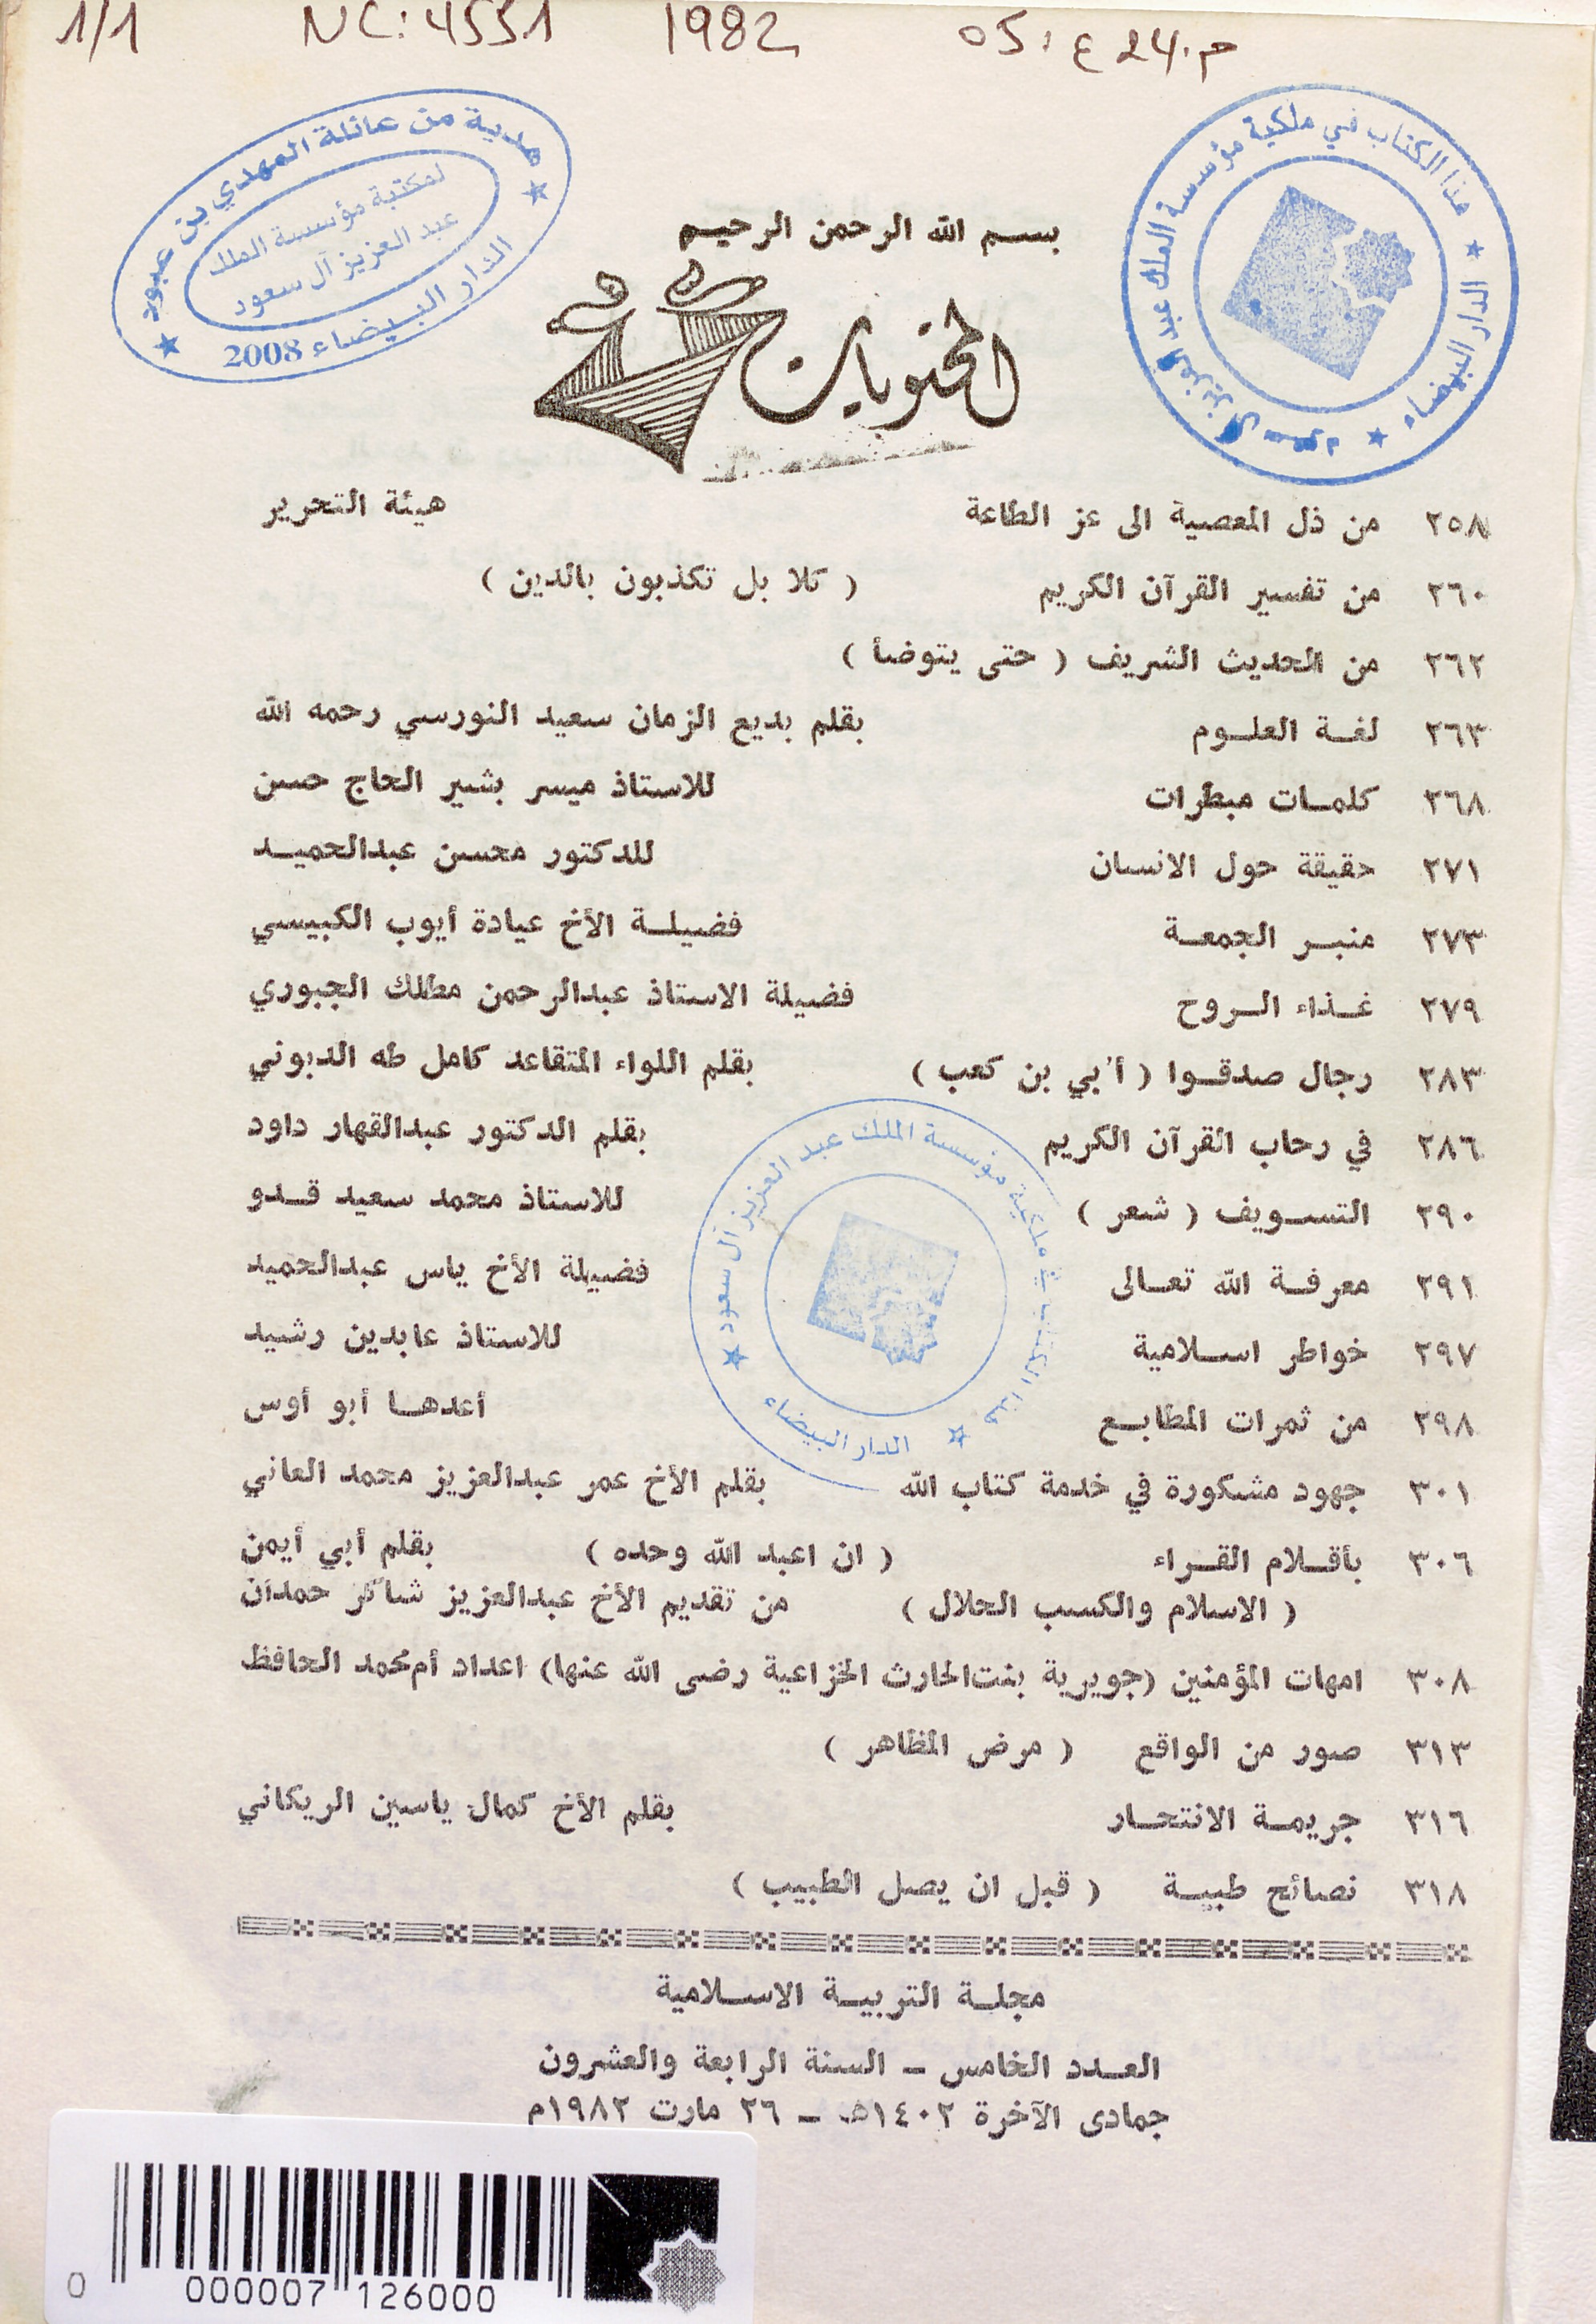 1/1 NC: 4551 1982 م.24 ع: 05
هدية من عائلة المهدي بن عبود
لمكتبة مؤسسة الملك
عبد العزيز آل سعود
الدار البيضاء 2008
هذا الكتاب في ملكية مؤسسة الملك عبد العزيز آل سعود
الدار البيضاء
بسم الله الرحمن الرحيم
المحتويات
٢٥٨ من ذل المعصية الى عز الطاعة هيئة التحرير
٢٦٠ من تفسير القرآن الكريم ( كلا بل تكذبون بالدين )
٢٦٢ من الحديث الشريف ( حتى يتوضأ )
٢٦٣ لغة العلوم بقلم بديع الزمان سعيد النورسي رحمه الله
٢٦٨ كلمات مبطرات للاستاذ ميسر بشير الحاج حسن
٢٧١ حقيقة حول الانسان للدكتور محسن عبدالحميد
٢٧٣ منبر الجمعة فضيلة الأخ عيادة أيوب الكبيسي
٢٧٩ غذاء الروح فضيلة الاستاذ عبدالرحمن مطلك الجبوري
٢٨٣ رجال صدقوا ( أُبي بن كعب ) بقلم اللواء المتقاعد كامل طه الدبوني
٢٨٦ في رحاب القرآن الكريم بقلم الدكتور عبدالقهار داود
٢٩٠ التسويف ( شعر ) للاستاذ محمد سعيد قدو
٢٩١ معرفة الله تعالى فضيلة الأخ ياس عبدالحميد
٢٩٧ خواطر اسلامية للاستاذ عابدين رشيد
٢٩٨ من ثمرات المطابع أعدها أبو أوس
٣٠١ جهود مشكورة في خدمة كتاب الله بقلم الأخ عمر عبدالعزيز محمد العاني
٣٠٦ بأقلام القراء ( ان اعبد الله وحده ) بقلم أبي أيمن
( الاسلام والكسب الحلال ) من تقديم الأخ عبدالعزيز شاكر حمدان
٣٠٨ امهات المؤمنين (جويرية بنت الحارث الخزاعية رضى الله عنها) اعداد أم محمد الحافظ
٣١٣ صور من الواقع ( مرض المظاهر )
٣١٦ جريمة الانتحار بقلم الأخ كمال ياسين الريكاني
٣١٨ نصائح طبية ( قبل ان يصل الطبيب )
هذا الكتاب في ملكية مؤسسة الملك عبد العزيز آل سعود
الدار البيضاء
مجلة التربية الاسلامية
العدد الخامس – السنة الرابعة والعشرون
جمادى الآخرة ١٤٠٢هـ – ٢٦ مارت ١٩٨٢م
0 000007 126000